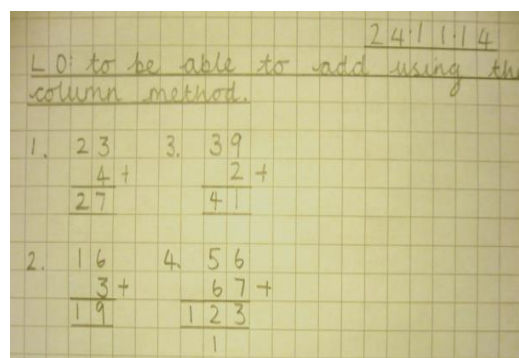 24.11.14
LO: to be able to add using the
column method.
1. 23 3. 39
4+ 2+
27 41
2. 16 4. 56
3+ 67+
19 123
1